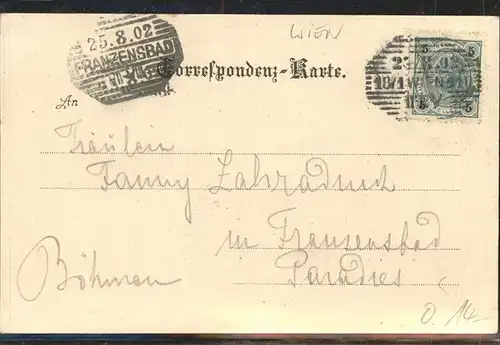 WIEN
25.8.02
FRANZENSBAD
Correspondenz-Karte.
5 5
18/1 WIEN
5 5
An
Fräulein
Fanny Zahradnik
in Franzensbad
Böhmen
Paradies
0. 14.-